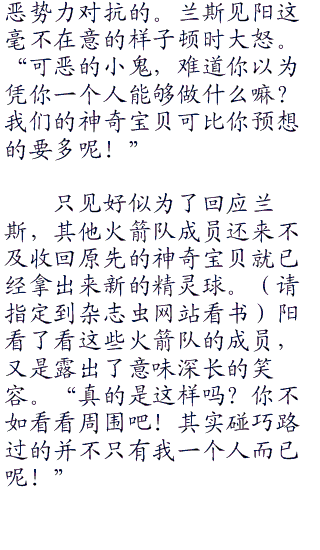 恶势力对抗的。兰斯见阳这
毫不在意的样子顿时大怒。
“可恶的小鬼，难道你以为
凭你一个人能够做什么嘛？
我们的神奇宝贝可比你预想
的要多呢！”
只见好似为了回应兰
斯，其他火箭队成员还来不
及收回原先的神奇宝贝就已
经拿出来新的精灵球。（请
指定到杂志虫网站看书）阳
看了看这些火箭队的成员，
又是露出了意味深长的笑
容。“真的是这样吗？你不
如看看周围吧！其实碰巧路
过的并不只有我一个人而已
呢！”